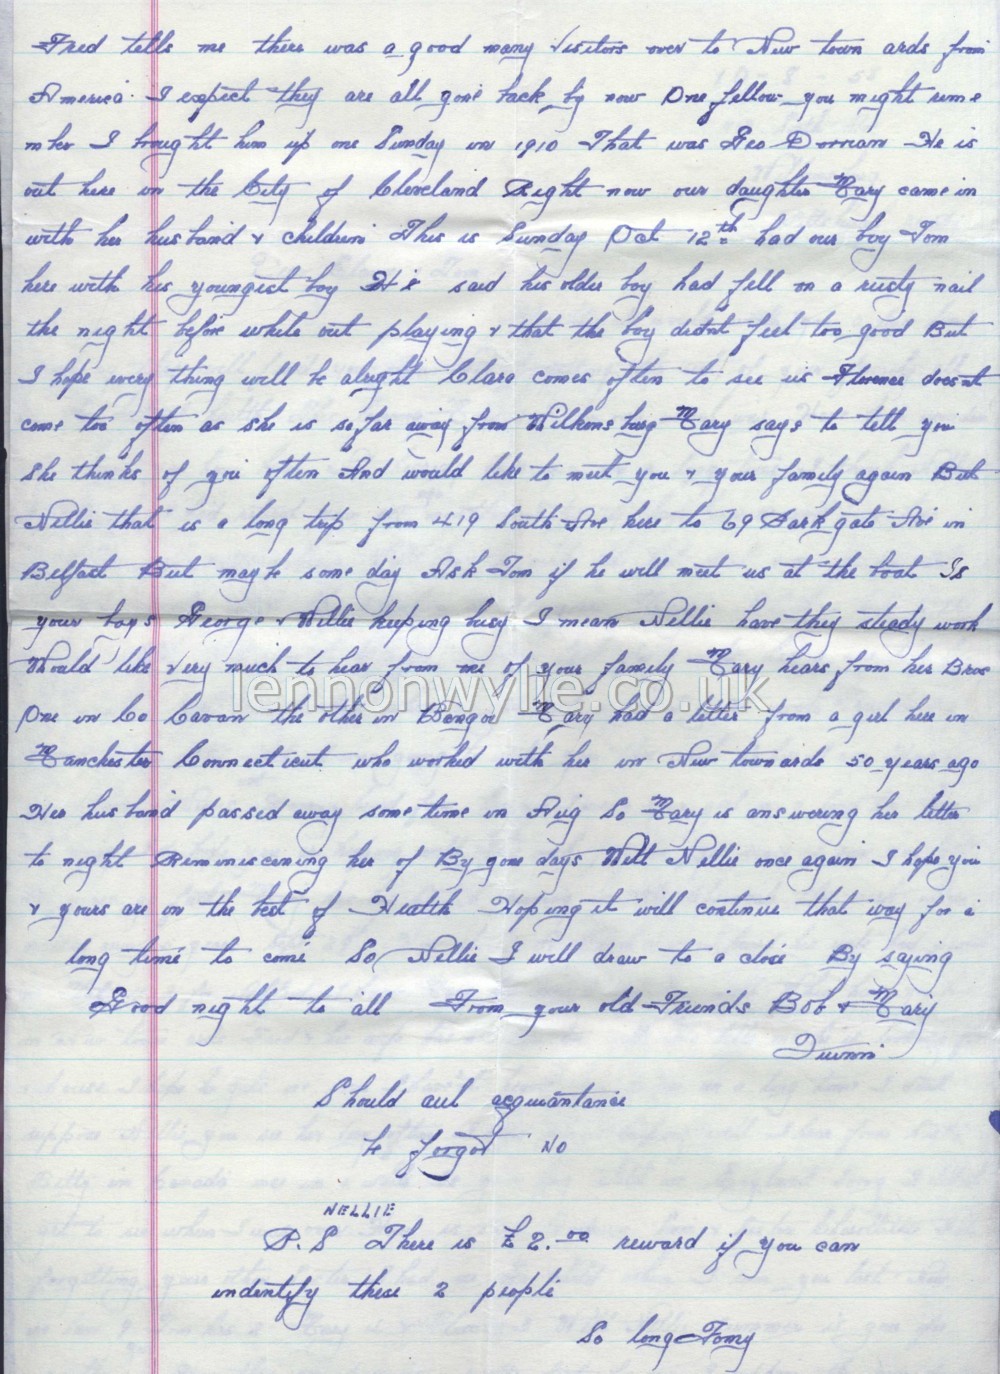 Fred tells me there was a good many visitors over to New town ards from
America I expect they are all gone back by now One fellow you might reme
mber I brought him up one Sunday in 1910 That was Geo Dorrian He is
out here in the City of Cleveland Right now our daughter Mary came in
with her husband & children This is Sunday Oct 12th had our boy Tom
here with his youngist boy He said his older boy had fell on a rusty nail
the night before while out playing & that the boy didnt feel too good But
I hope every thing will be alright Clara comes often to see us Florence doesnt
come too often as she is so far away from Wilkinsburg Mary says to tell you
She thinks of you often And would like to meet you & your family again But
Nellie that is a long trip from 419 South Ave here to 69 Park gate Ave in
Belfast But maybe some day Ask Tom if he will meet us at the boat Is
your boys George & Willie keeping busy I mean Nellie have they steady work
Would like very much to hear from one of your family Mary hears from her Bros
One in Co Cavan the other in Bangor Mary had a letter from a girl here in
Manchester Connecticut who worked with her in New townards 50 years ago
Her husband passed away some time in Aug So Mary is answering her letter
to night Reminiscening her of By gone days Well Nellie once again I hope you
& yours are in the best of Health Hoping it will continue that way for a
long time to come So Nellie I will draw to a close By saying
Good night to all From your old Friends Bob & Mary
Should aul acquantance
be forgot NO
NELLIE
P.S There is £2.00 reward if you can
indentify these 2 people
So long Tomy
lennonwylie.co.uk